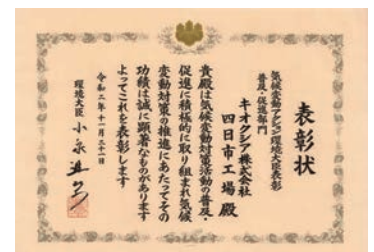 表彰状
気候変動アクション環境大臣表彰
普及・促進部門
キオクシア株式会社
四日市工場 殿
貴殿は気候変動対策活動の普及・
促進に積極的に取り組まれ気候
変動対策の推進にあたってその
功績は誠に顕著なものがあります
よってこれを表彰します
令和二年十一月三十一日
環境大臣 小泉進